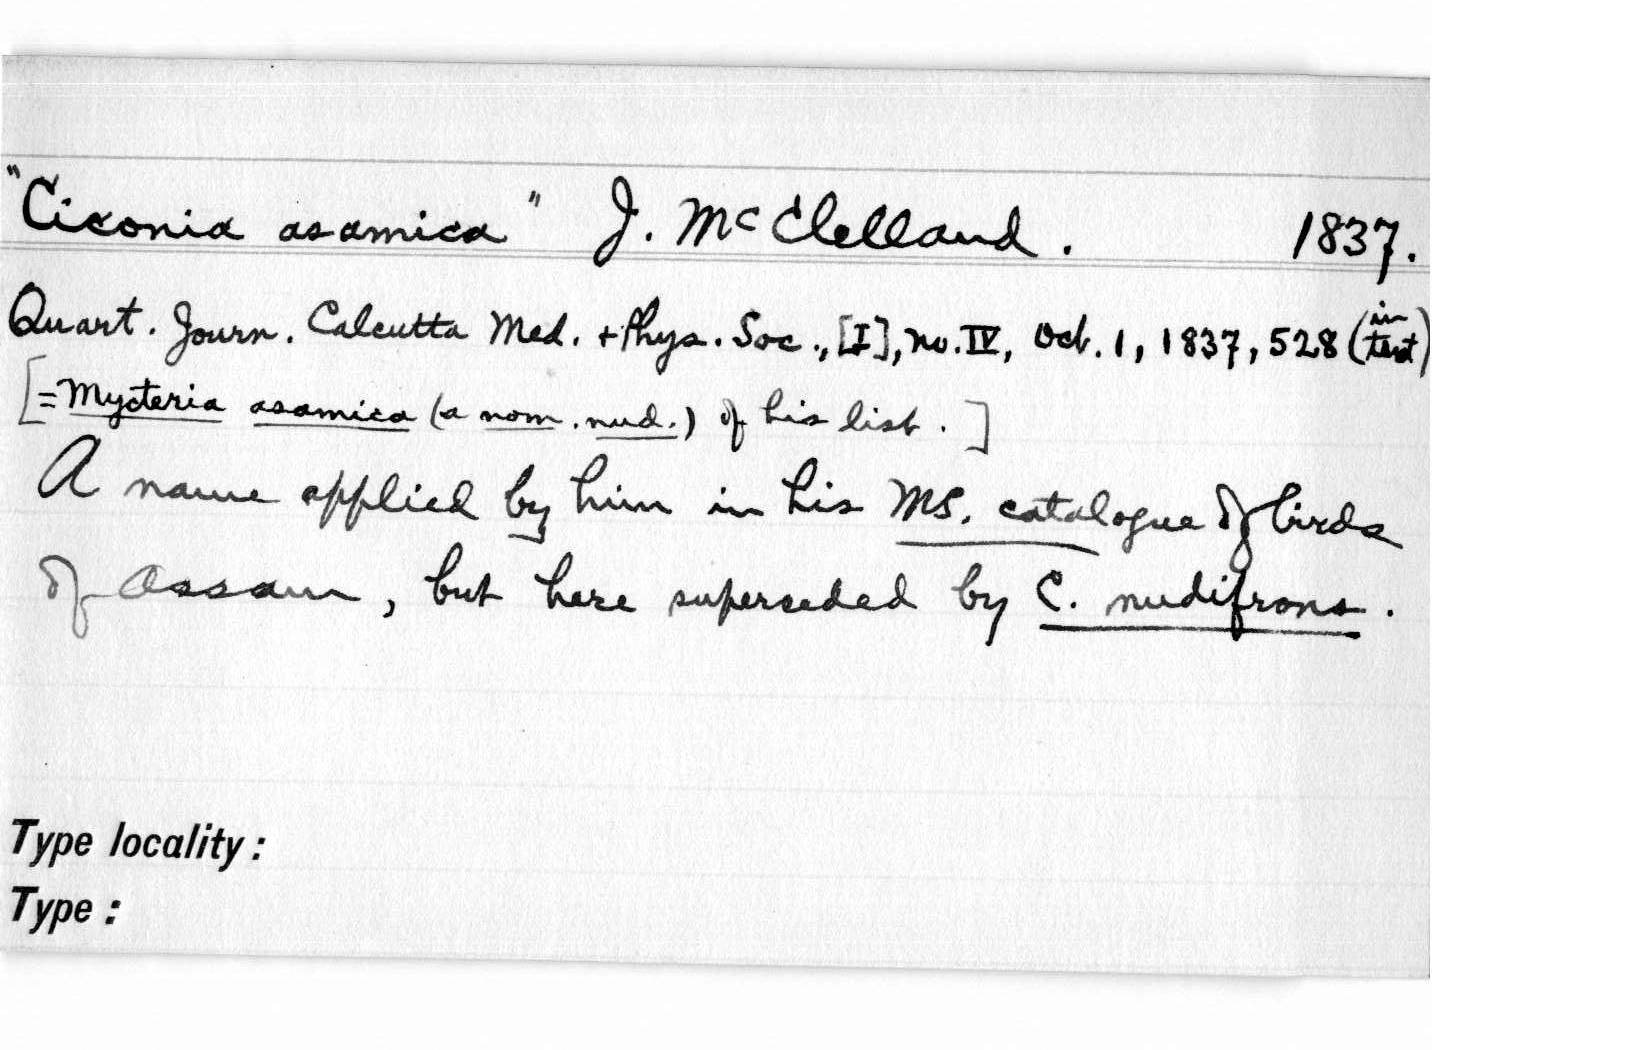 "Ciconia asamica" J. McClelland. 1837.
Quart. Journ. Calcutta Med. + Phys. Soc., [I], no. IV, Oct. 1, 1837, 528 (in text)
[=Mycteria asamica (a nom. nud.) of his list.]
A name applied by him in his MS. catalogue of birds
of Assam, but here superseded by C. nudifrons.
Type locality:
Type: